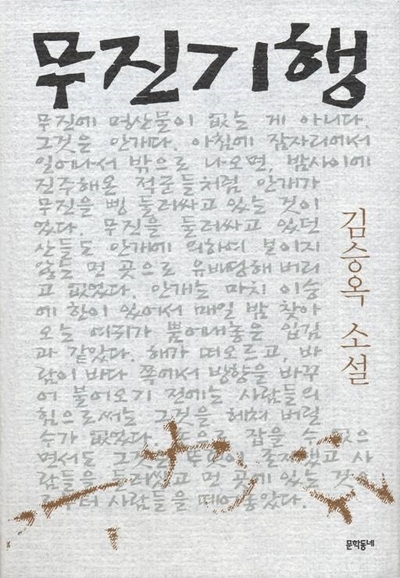 무진기행
무진에 명산물이 없는 게 아니다.
그것은 안개다. 아침에 잠자리에서
일어나서 밖으로 나오면, 밤사이에
진주해온 적군들처럼 안개가
무진을 삥 둘러싸고 있는 것이
었다. 무진을 둘러싸고 있던
산들도 안개에 의하여 보이지
않는 먼 곳으로 유배당해버리
고 없었다. 안개는 마치 이승
에 한이 있어서 매일 밤 찾아
오는 여귀가 뿜어내놓은 입김
과 같았다. 해가 떠오르고, 바
람이 바다 쪽에서 방향을 바꾸
어 불어오기 전에는 사람들의
힘으로써는 그것을 헤쳐 버릴
수가 없었다. 손으로 잡을 수 없으
면서도 그것은 뚜렷이 존재했고 사
람들을 둘러쌌고 먼 곳에 있는 것으
로부터 사람들을 떼어놓았다.
김승옥 소설
문학동네